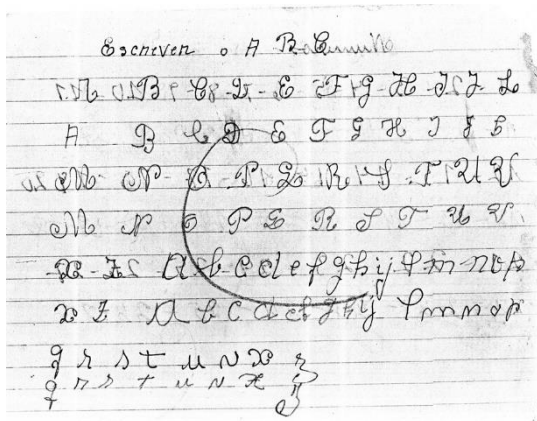 Escreven o A B C
A B C D E F G H I J L
A B C D E F G H I J L
M N O P Q R S T U V
M N O P Q R S T U V
x z a b c d e f g h i j l m n o p
x z a b c d e f g h i j l m n o p
q r s t u v x z
q r s t u v x z